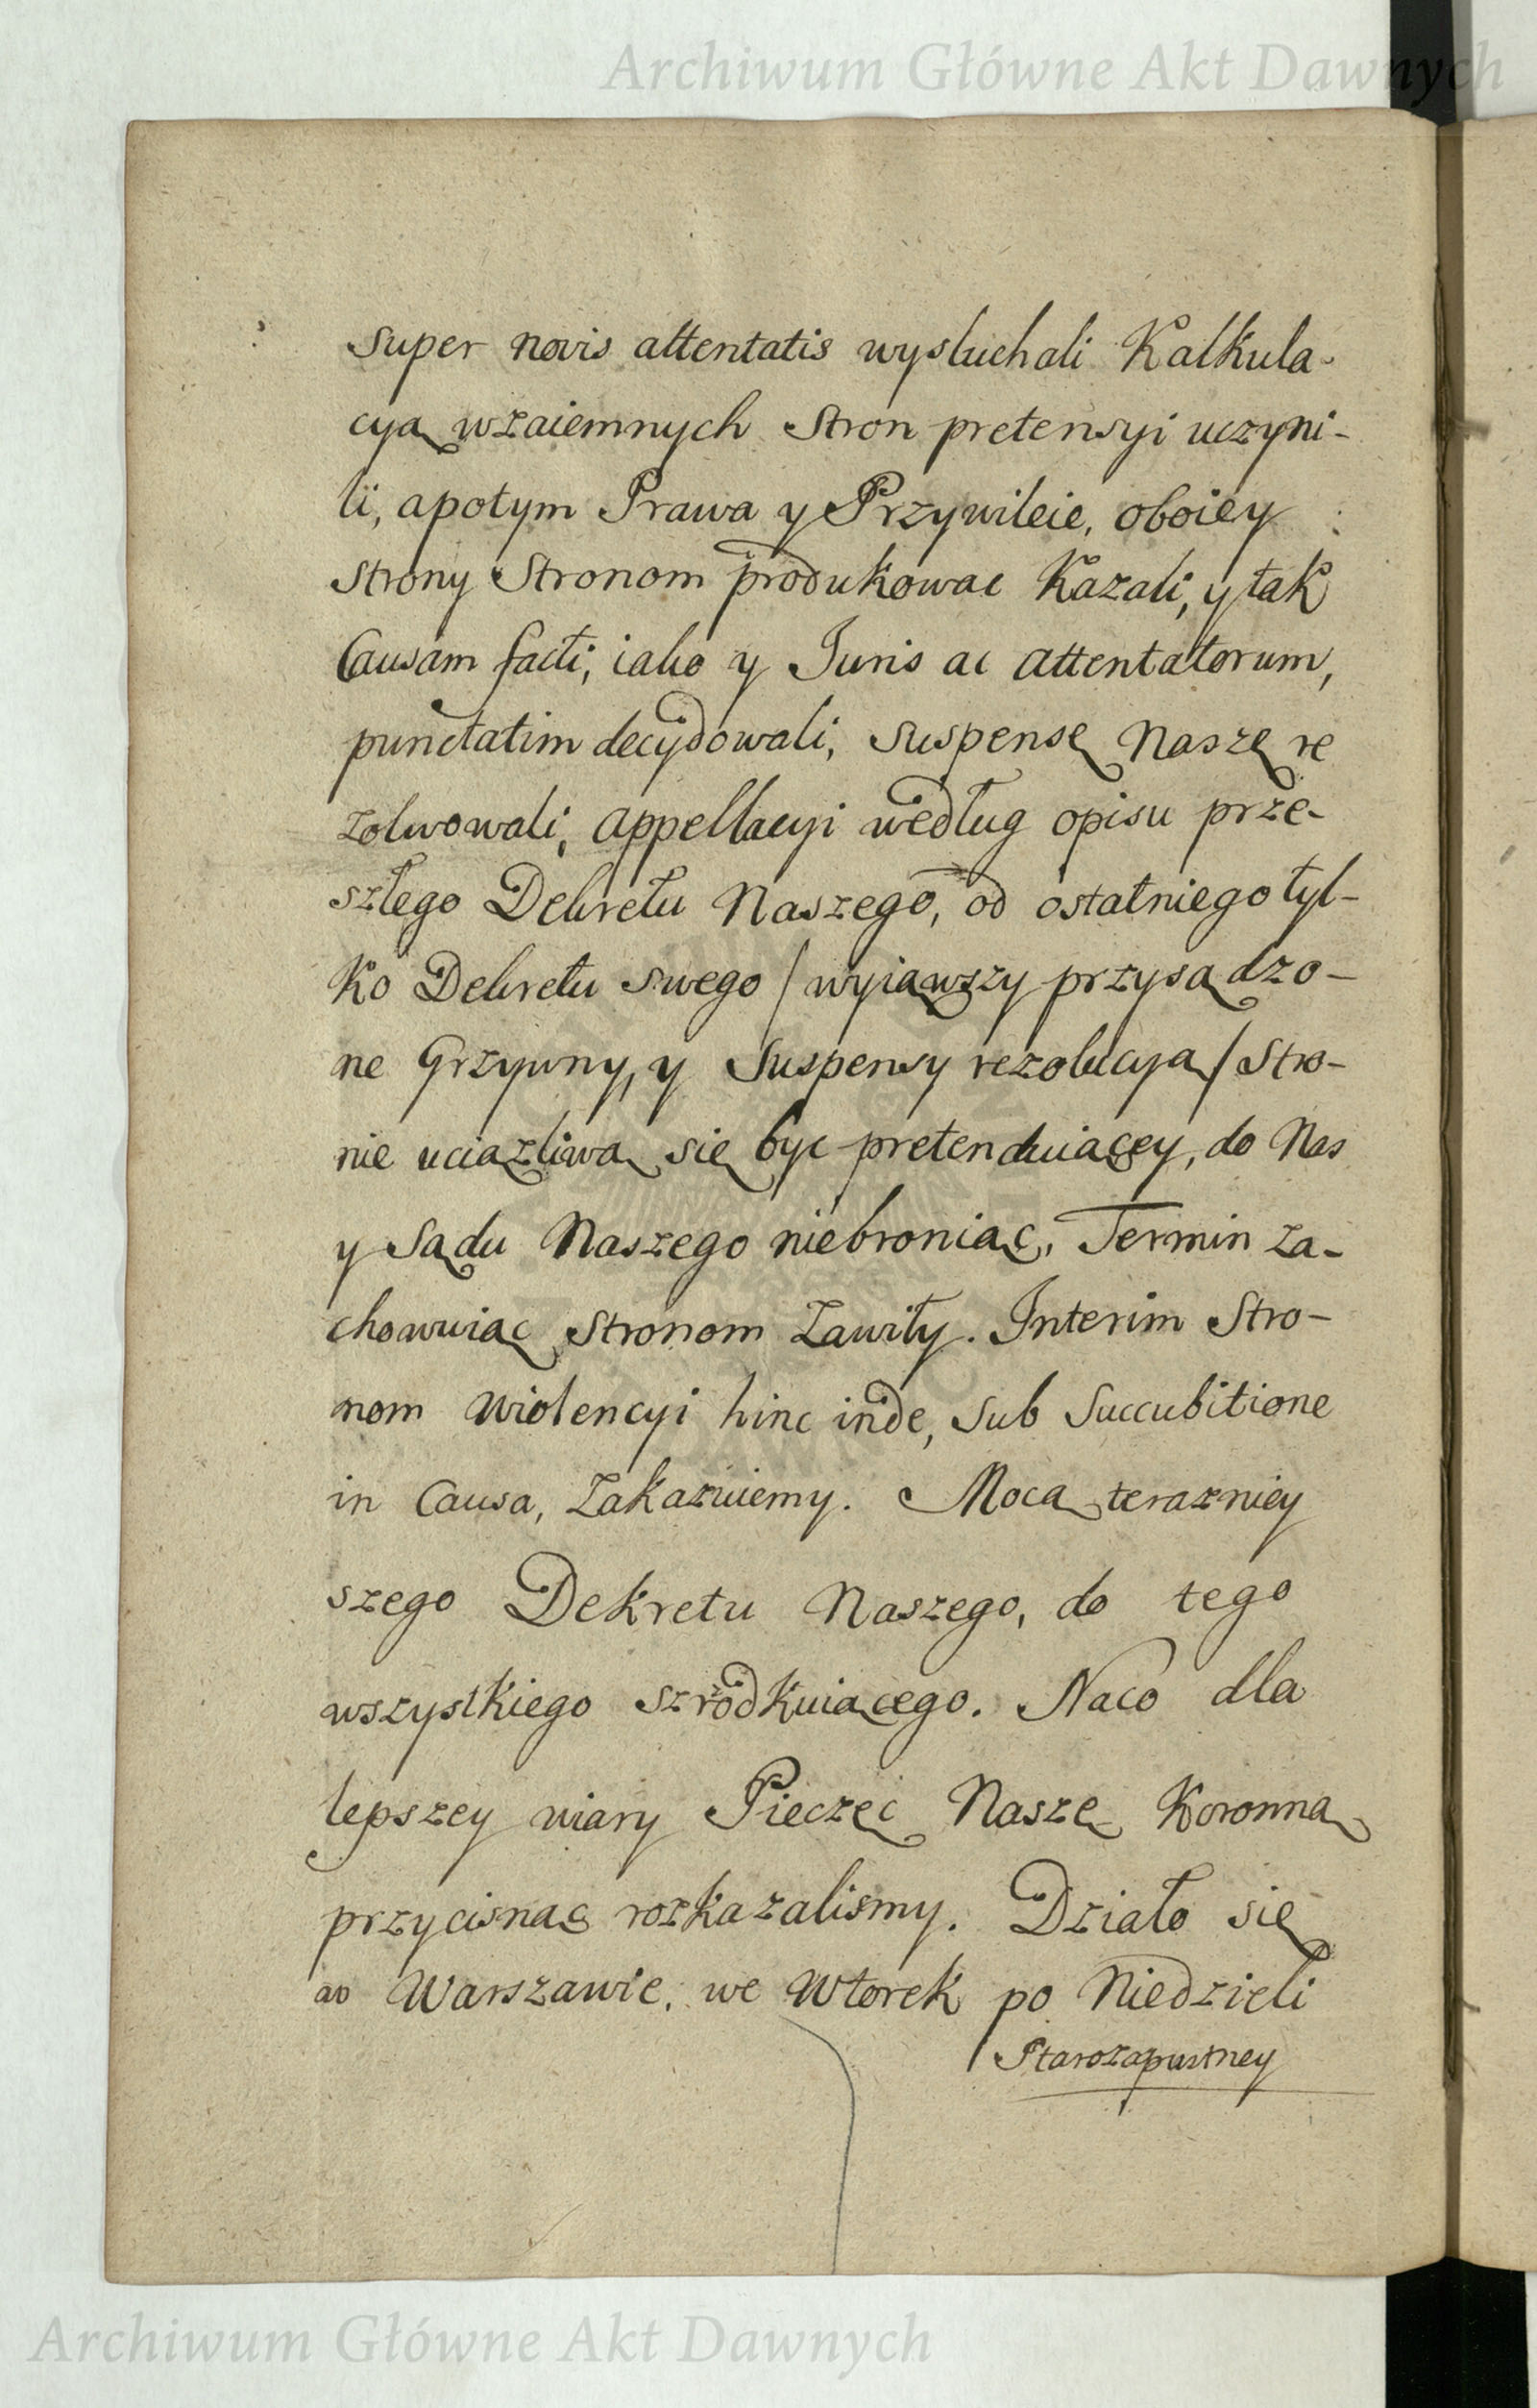 Archiwum Główne Akt Dawnych
super novis attentatis wysłuchali Kalkula-
cyą wzaiemnych Stron pretensyi uczyni-
li, apotym Prawa y Przywileie, oboiey
Strony Stronom produkowac Kazali, y tak
Causam facti, iako y Iuris ac attentatorum,
punctatim decydowali, suspensę Naszę re
zolwowali, appellacyi według opisu prze-
szłego Dekretu Naszego, od ostatniego tyl-
ko Dekretu swego / wyiąwszy przysądzo-
ne Grzywny, y Suspensy rezolucyą / Stro-
nie uciązliwą się byc pretenduiącey, do Nas
y Sądu Naszego niebroniąc, Termin za-
chowuiąc Stronom Zawity. Interim Stro-
nom Wiolencyi hinc inde, sub Succubitione
in Causa, Zakazuiemy. Mocą terazniey
szego Dekretu Naszego, do tego
wszystkiego szrodkuiącego. Naco dla
lepszey wiary Pieczęc Naszę Koronną
przycisnąc rozkazalismy. Działo się
w Warszawie, we Wtorek po Niedzieli
Starozapustney
Archiwum Główne Akt Dawnych